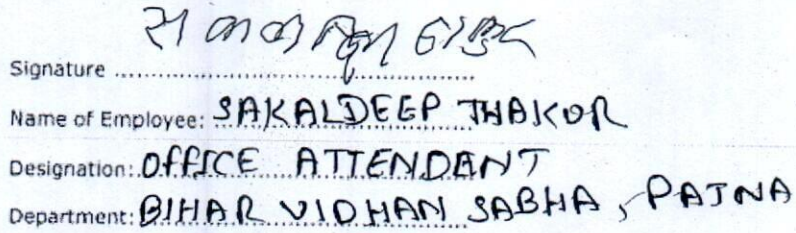 Signature ....................
Name of Employee: SAKALDEEP THAKUR
Designation: OFFICE ATTENDANT
Department: BIHAR VIDHAN SABHA, PATNA